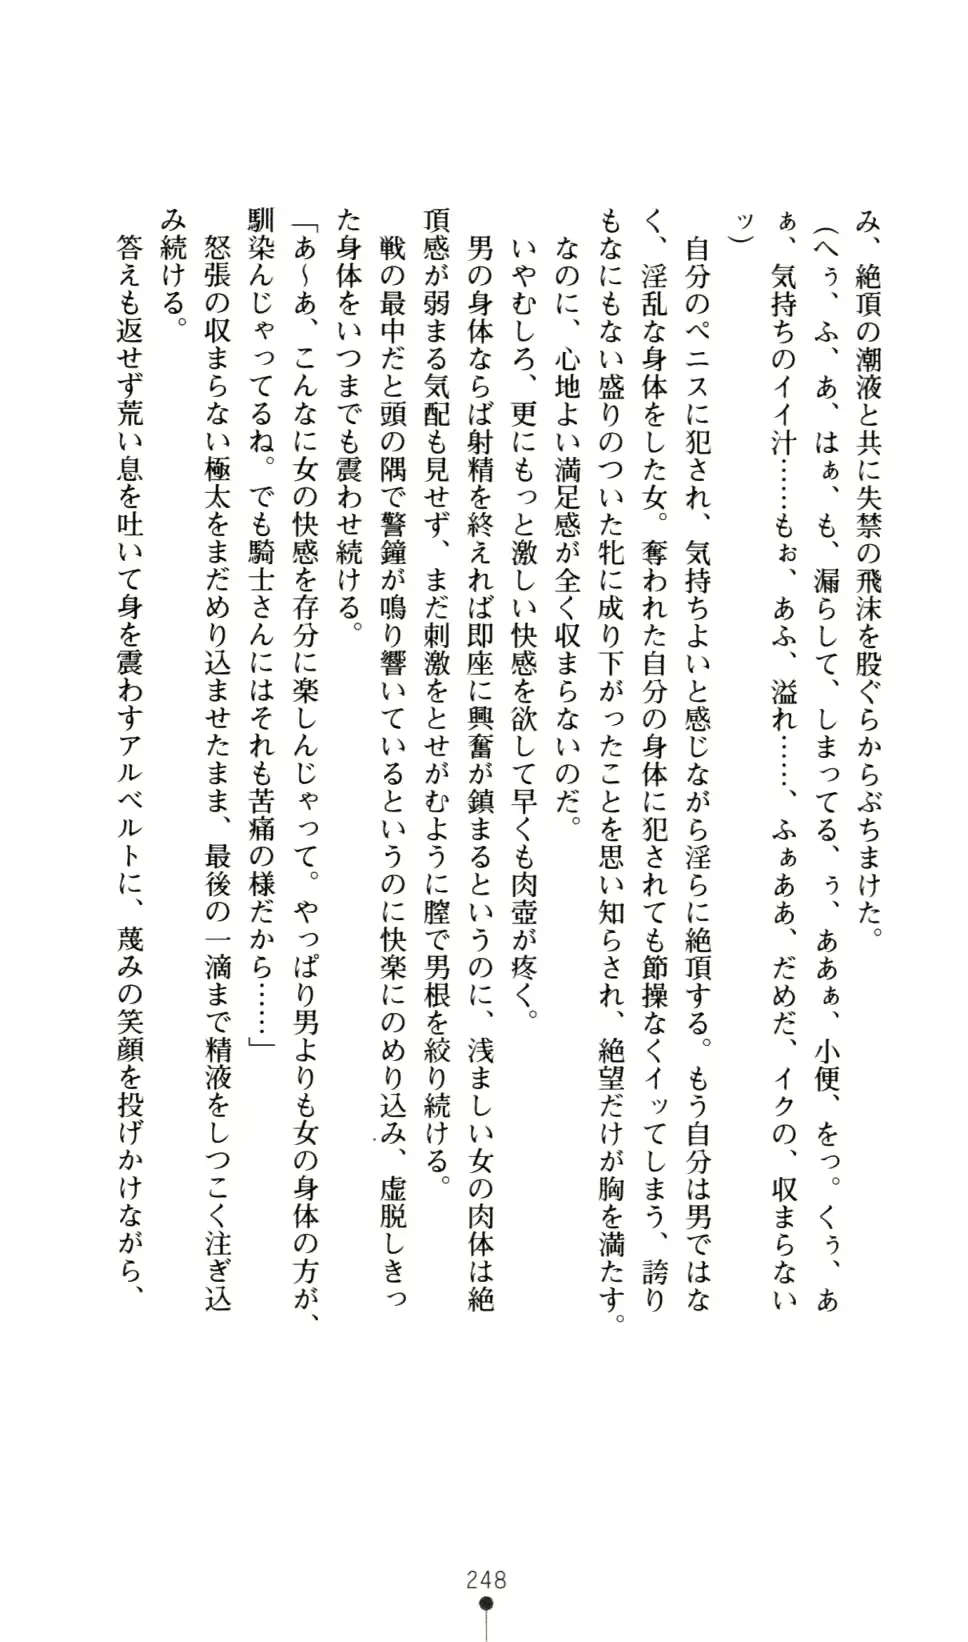 み、絶頂の潮液と共に失禁の飛沫を股ぐらからぶちまけた。
(へぅ、ふ、あ、はぁ、も、漏らして、しまってる、ぅ、ああぁ、小便、をっ。くぅ、あ
ぁ、気持ちのイイ汁……もぉ、あふ、溢れ……、ふぁああ、だめだ、イクの、収まらない
ッ)
自分のペニスに犯され、気持ちよいと感じながら淫らに絶頂する。もう自分は男ではな
く、淫乱な身体をした女。奪われた自分の身体に犯されても節操なくイッてしまう、誇り
もなにもない盛りのついた牝に成り下がったことを思い知らされ、絶望だけが胸を満たす。
なのに、心地よい満足感が全く収まらないのだ。
いやむしろ、更にもっと激しい快感を欲して早くも肉壺が疼く。
男の身体ならば射精を終えれば即座に興奮が鎮まるというのに、浅ましい女の肉体は絶
頂感が弱まる気配も見せず、まだ刺激をとせがむように膣で男根を絞り続ける。
戦の最中だと頭の隅で警鐘が鳴り響いているというのに快楽にのめり込み、虚脱しきっ
た身体をいつまでも震わせ続ける。
「あ～あ、こんなに女の快感を存分に楽しんじゃって。やっぱり男よりも女の身体の方が、
馴染んじゃってるね。でも騎士さんにはそれも苦痛の様だから……」
怒張の収まらない極太をまだめり込ませたまま、最後の一滴まで精液をしつこく注ぎ込
み続ける。
答えも返せず荒い息を吐いて身を震わすアルベルトに、蔑みの笑顔を投げかけながら、
248